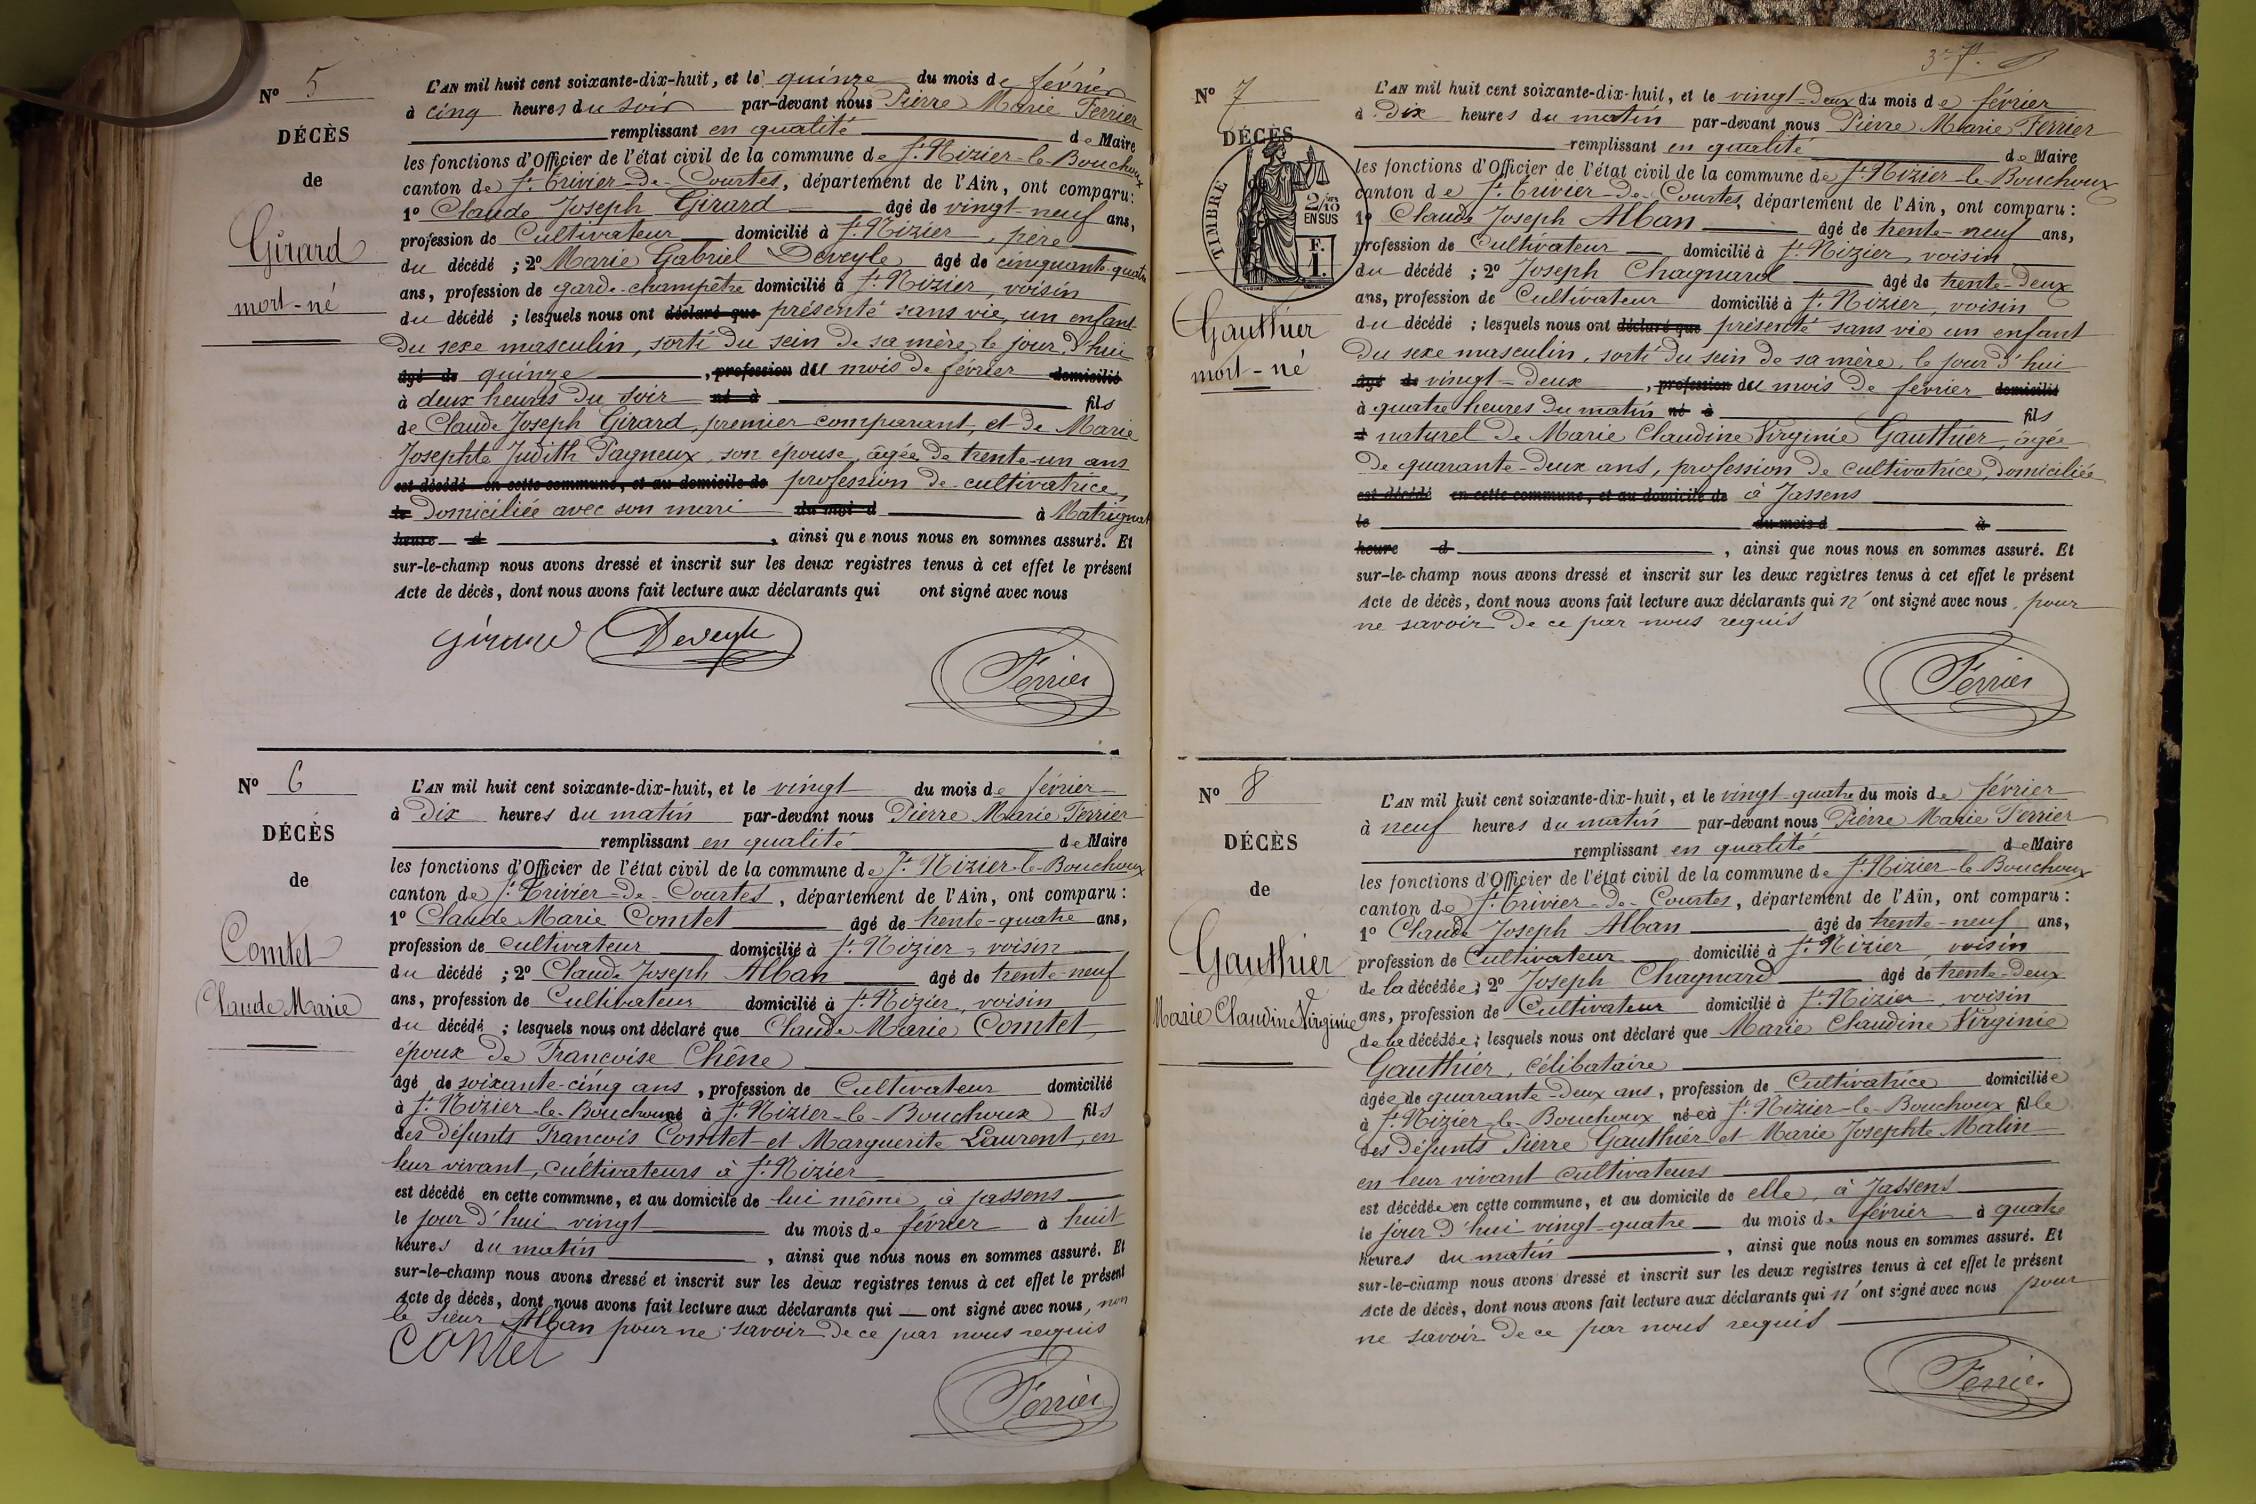 Nº 5
DÉCÈS
de
Girard
mort-né
L'AN mil huit cent soixante-dix-huit, et le quinze du mois de février
à cinq heures du soir par-devant nous Pierre Marie Ferrier
remplissant en qualité de Maire
les fonctions d'Officier de l'état civil de la commune de St Nizier-le-Bouchoux
canton de St Trivier-de-Courtes, département de l'Ain, ont comparu :
1º Claude Joseph Girard âgé de vingt-neuf ans,
profession de Cultivateur domicilié à St Nizier, père
du décédé ; 2º Marie Gabriel Deveyle âgé de cinquante-quatre
ans, profession de garde-champêtre domicilié à St Nizier, voisin
du décédé ; lesquels nous ont déclaré que présenté sans vie, un enfant
du sexe masculin, sorti du sein de sa mère, le jour d'hui
âgé de quinze , profession du mois de février domicilié
à deux heures du soir né à fils
de Claude Joseph Girard, premier comparant, et de Marie
Josephte Judith Pagneux, son épouse, âgée de trente-un ans
est décédé en cette commune, et au domicile de profession de cultivatrice,
le domiciliée avec son mari du moi d à Matrignat
heure d , ainsi que nous nous en sommes assuré. Et
sur-le-champ nous avons dressé et inscrit sur les deux registres tenus à cet effet le présent
Acte de décès, dont nous avons fait lecture aux déclarants qui ont signé avec nous
Girard Deveyle
Ferrier
Nº 6
DÉCÈS
de
Comtet
Claude Marie
L'AN mil huit cent soixante-dix-huit, et le vingt du mois de février
à dix heures du matin par-devant nous Pierre Marie Ferrier
remplissant en qualité de Maire
les fonctions d'Officier de l'état civil de la commune de St Nizier-le-Bouchoux
canton de St Trivier-de-Courtes, département de l'Ain, ont comparu :
1º Claude Marie Comtet âgé de trente-quatre ans,
profession de cultivateur domicilié à St Nizier, voisin
du décédé ; 2º Claude Joseph Alban âgé de trente-neuf
ans, profession de Cultivateur domicilié à St Nizier, voisin
du décédé ; lesquels nous ont déclaré que Claude Marie Comtet,
époux de Françoise Chêne
âgé de soixante-cinq ans, profession de Cultivateur domicilié
à St Nizier-le-Bouchoux né à St Nizier-le-Bouchoux fils
des défunts François Comtet et Marguerite Laurent, en
leur vivant, cultivateurs à St Nizier
est décédé en cette commune, et au domicile de lui même, à Jassens
le jour d'hui vingt du mois de février à huit
heures du matin , ainsi que nous nous en sommes assuré. Et
sur-le-champ nous avons dressé et inscrit sur les deux registres tenus à cet effet le présent
Acte de décès, dont nous avons fait lecture aux déclarants qui ont signé avec nous, non
le Sieur Alban pour ne savoir de ce par nous requis
Comtet
Ferrier
Nº 7
DÉCÈS
TIMBRE
2/10
EN SUS
F.
1.
Gauthier
mort-né
L'AN mil huit cent soixante-dix-huit, et le vingt-deux du mois de février
à dix heures du matin par-devant nous Pierre Marie Ferrier
remplissant en qualité de Maire
les fonctions d'Officier de l'état civil de la commune de St Nizier-le-Bouchoux
canton de St Trivier-de-Courtes, département de l'Ain, ont comparu :
1º Claude Joseph Alban âgé de trente-neuf ans,
profession de Cultivateur domicilié à St Nizier, voisin
du décédé ; 2º Joseph Chagnard âgé de trente-deux
ans, profession de Cultivateur domicilié à St Nizier, voisin
du décédé ; lesquels nous ont déclaré que présenté sans vie un enfant
du sexe masculin, sorti du sein de sa mère, le jour d'hui
âgé de vingt-deux , profession du mois de février domicilié
à quatre heures du matin né à fils
naturel de Marie Claudine Virginie Gauthier, âgée
de quarante-deux ans, profession de cultivatrice, domiciliée
est décédé en cette commune, et au domicile de à Jassens
le du mois d à
heure d , ainsi que nous nous en sommes assuré. Et
sur-le-champ nous avons dressé et inscrit sur les deux registres tenus à cet effet le présent
Acte de décès, dont nous avons fait lecture aux déclarants qui n'ont signé avec nous, pour
ne savoir de ce par nous requis
Ferrier
Nº 8
DÉCÈS
de
Gauthier
Marie Claudine Virginie
L'AN mil huit cent soixante-dix-huit, et le vingt-quatre du mois de février
à neuf heures du matin par-devant nous Pierre Marie Ferrier
remplissant en qualité de Maire
les fonctions d'Officier de l'état civil de la commune de St Nizier-le-Bouchoux
canton de St Trivier-de-Courtes, département de l'Ain, ont comparu :
1º Claude Joseph Alban âgé de trente-neuf ans,
profession de Cultivateur domicilié à St Nizier, voisin
de la décédée ; 2º Joseph Chagnard âgé de trente-deux
ans, profession de Cultivateur domicilié à St Nizier, voisin
de la décédée ; lesquels nous ont déclaré que Marie Claudine Virginie
Gauthier, célibataire
âgée de quarante-deux ans, profession de Cultivatrice domiciliée
à St Nizier-le-Bouchoux née à St Nizier-le-Bouchoux fille
des défunts Pierre Gauthier et Marie Josephte Malin
en leur vivant cultivateurs
est décédée en cette commune, et au domicile de elle, à Jassens
le jour d'hui vingt-quatre du mois de février à quatre
heures du matin , ainsi que nous nous en sommes assuré. Et
sur-le-champ nous avons dressé et inscrit sur les deux registres tenus à cet effet le présent
Acte de décès, dont nous avons fait lecture aux déclarants qui n'ont signé avec nous pour
ne savoir de ce par nous requis
Ferrier